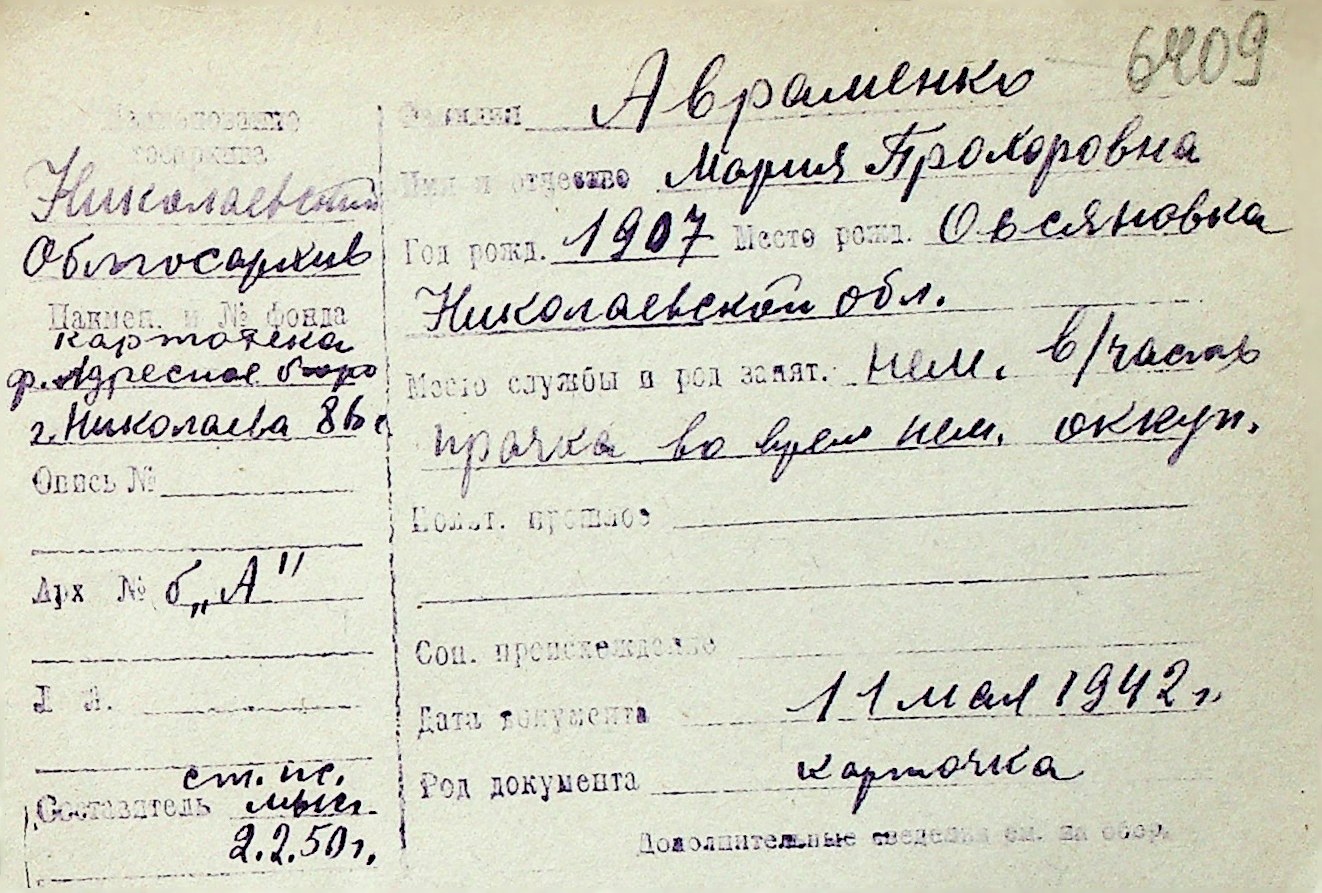 6409
Наименование
госархива
Николаевский
Облгосархив
Наимен. и № фонда
картотека
ф. Адресное бюро
г. Николаева
Опись №
Арх № б„А"
Л Л.
ст. пс.
Составитель
2.2.50г.
Фамилия Авраменко
Имя и отчество Мария Прохоровна
Год рожд. 1907 Место рожд. Овсяновка
Николаевской обл.
Место службы и род занят. нем. в/частях
прачка во врем нем. оккуп.
Полит. прошлое
Соц. происхождение
Дата документа 11 мая 1942 г.
Род документа карточка
Дополнительные сведения см. на обор.